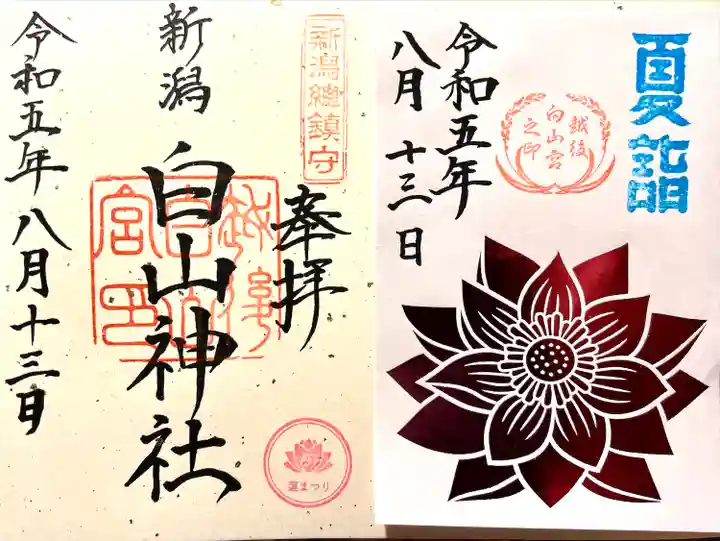 夏詣
越後
白山宮
之印
令和五年
八月十三日
新潟總鎮守
奉拝
越後
白山
宮印
新潟
白山神社
令和五年八月十三日
蓮まつり